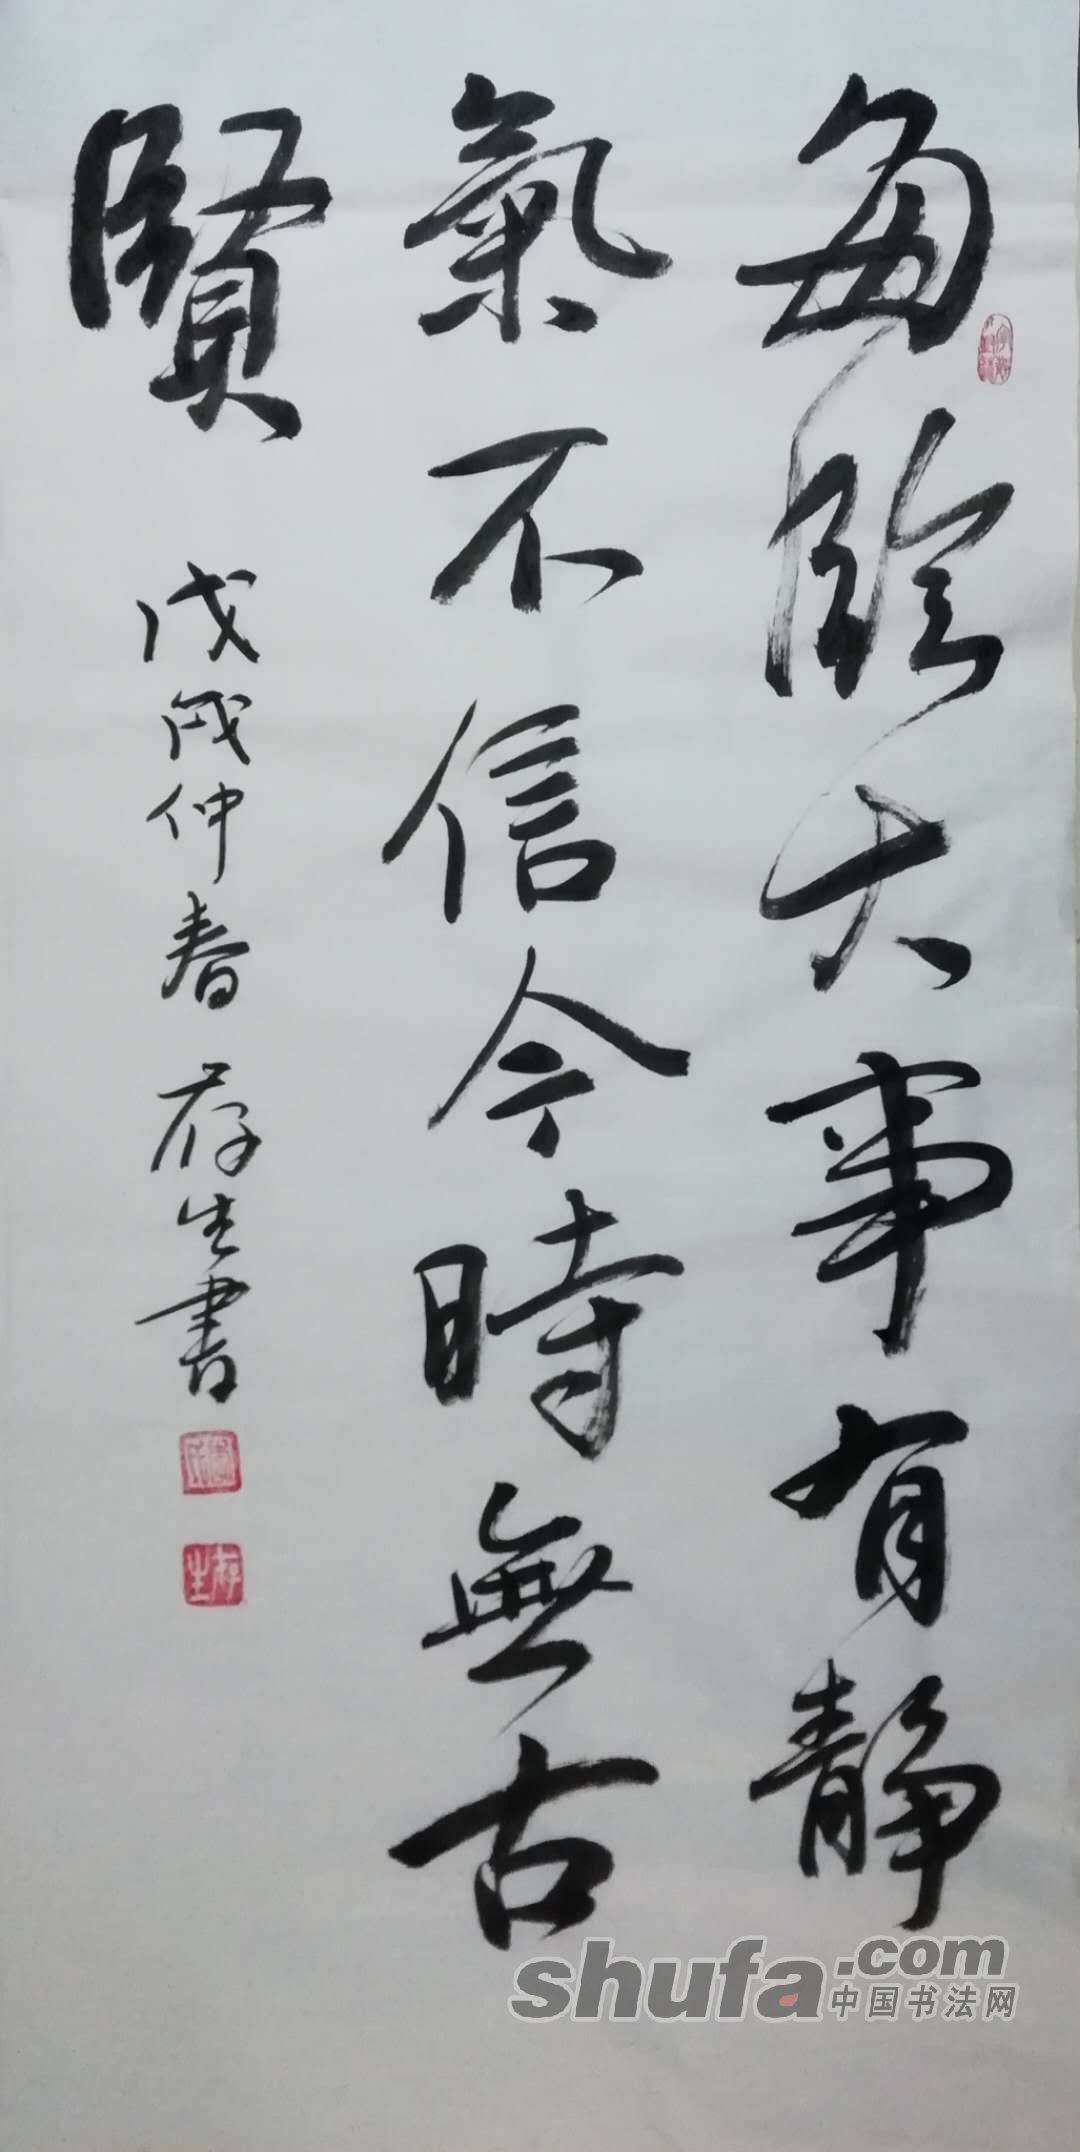 每臨大事有靜
氣不信今時無古
賢
戊戌仲春 存生書
存生
shufa.com
中国书法网